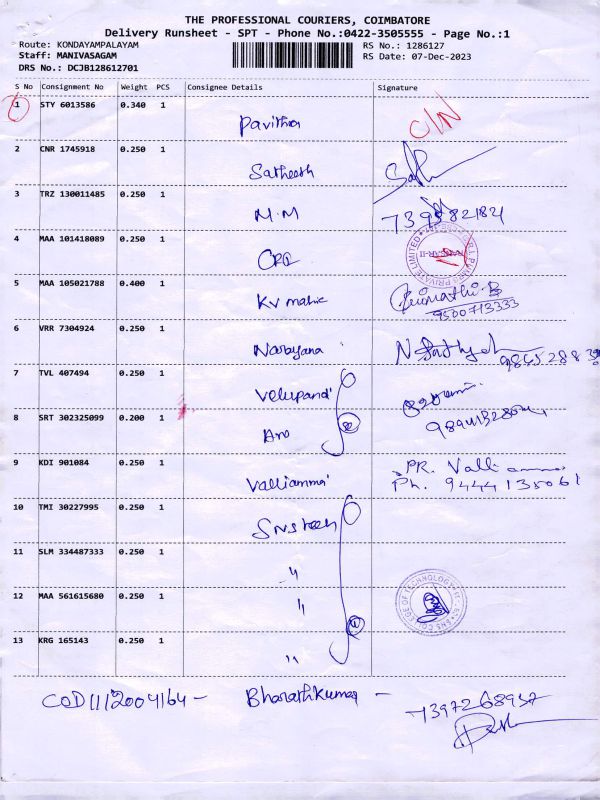 THE PROFESSIONAL COURIERS, COIMBATORE
Delivery Runsheet - SPT - Phone No.:0422-3505555 - Page No.:1
Route: KONDAYAMPALAYAM RS No.: 1286127
Staff: MANIVASAGAM RS Date: 07-Dec-2023
DRS No.: DCJB128612701
S No Consignment No Weight PCS Consignee Details Signature
1 STY 6013586 0.340 1
Pavithra C/N
2 CNR 1745918 0.250 1
Satheesh
3 TRZ 130011485 0.250 1
M.M
4 MAA 101418089 0.250 1
PRIVATE LIMITED
5 MAA 105021788 0.400 1
Kv
9500713333
6 VRR 7304924 0.250 1
Narayana
7 TVL 407494 0.250 1
Velupandi
8 SRT 302325099 0.200 1
9 KDI 901084 0.250 1
Valliammai PR. Valliammai
Ph. 9444135061
10 TMI 30227995 0.250 1
11 SLM 334487333 0.250 1
"
12 MAA 561615680 0.250 1
" COLLEGE OF TECHNOLOGY
13 KRG 165143 0.250 1
"
Bharathkumar -
7397268937